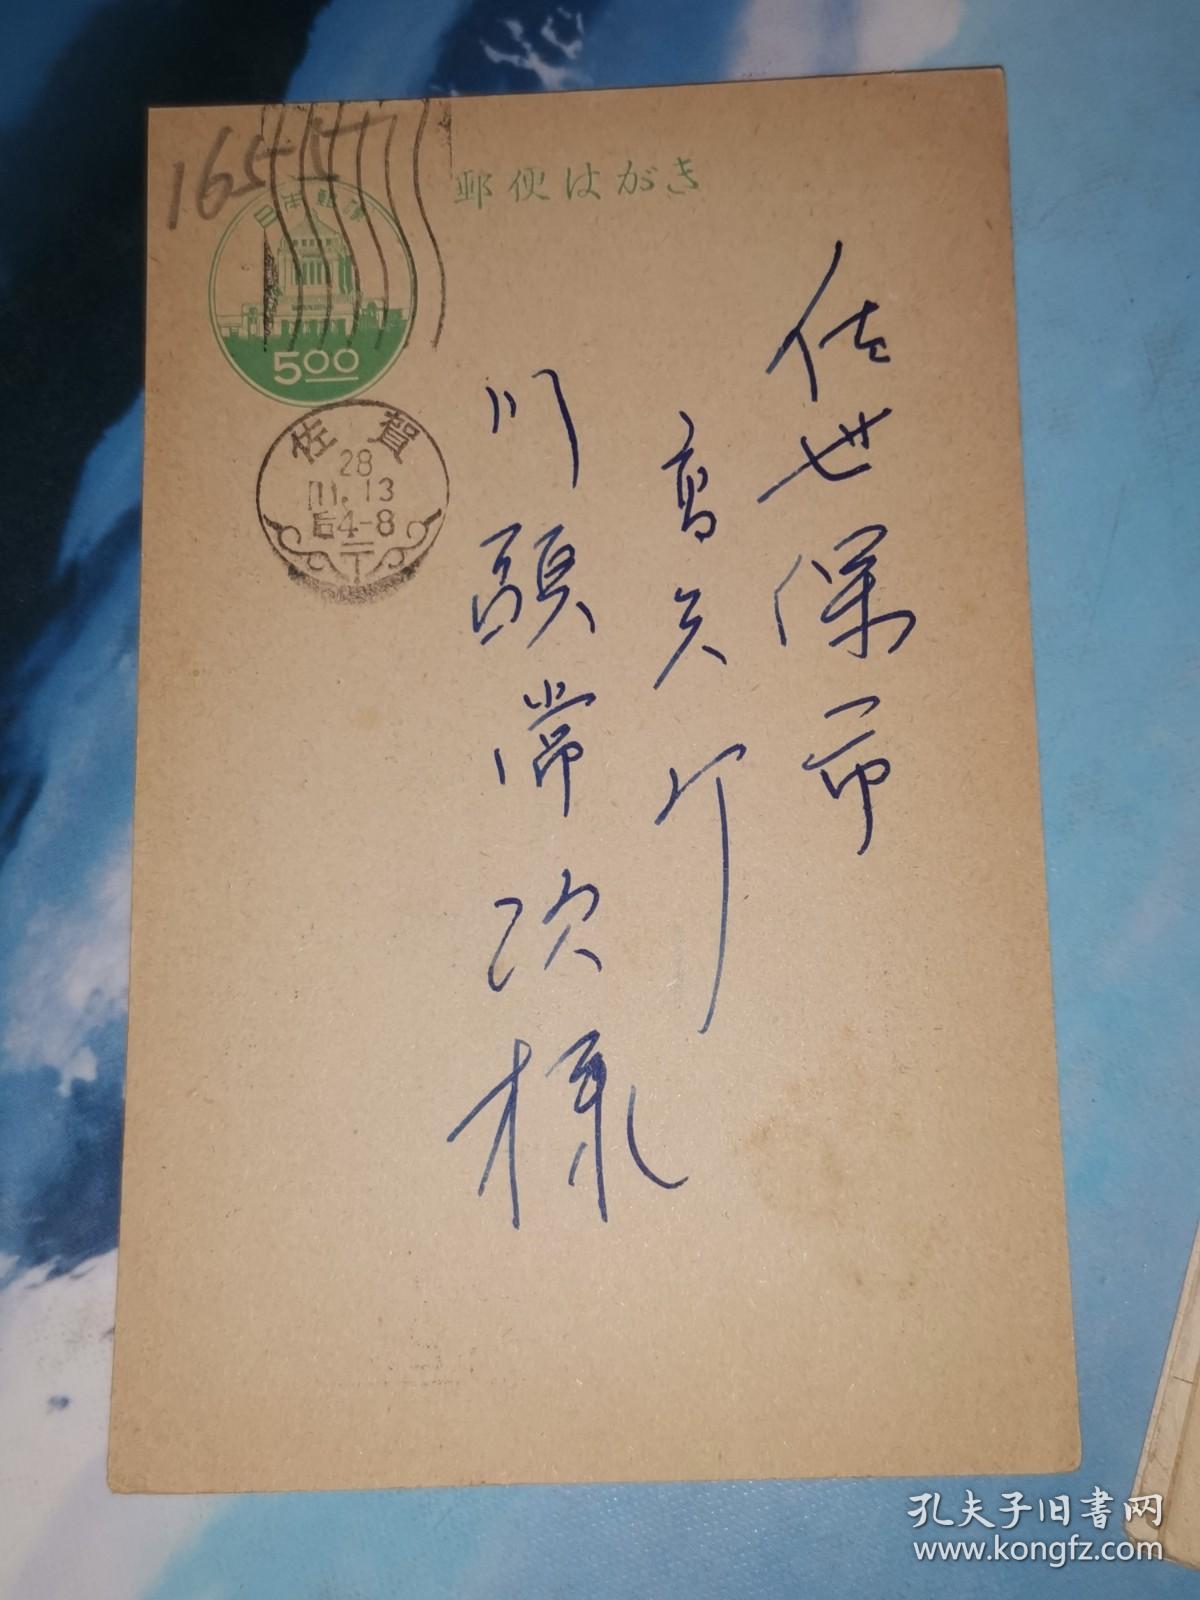 165
郵便はがき
日本郵便
5.00
佐賀
28
11.13
后4-8
佐世保市
高天町
川頭常次様
孔夫子旧书网
www.kongfz.com